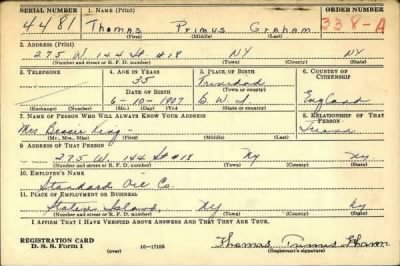 SERIAL NUMBER 1. NAME (Print) ORDER NUMBER
4481 Thomas Primus Graham 338-A
(First) (Middle) (Last)
2. ADDRESS (Print)
275 W. 144 St. #18 NY NY
(Number and street or R. F. D. number) (Town) (County) (State)
3. TELEPHONE 4. AGE IN YEARS 5. PLACE OF BIRTH 6. COUNTRY OF CITIZENSHIP
35 Trinidad
DATE OF BIRTH (Town or county)
6-10-1907 B. W. I. England
(Exchange) (No.) (Mo.) (Day) (Yr.) (State or country)
7. NAME OF PERSON WHO WILL ALWAYS KNOW YOUR ADDRESS 8. RELATIONSHIP OF THAT PERSON
Mrs Bessie King - Friend
(Mr., Mrs., Miss) (First) (Middle) (Last)
9. ADDRESS OF THAT PERSON
275 W. 144 St #18 Ny Ny
(Number and street or R. F. D. number) (Town) (County) (State)
10. EMPLOYER'S NAME
Standard Oil Co.
11. PLACE OF EMPLOYMENT OR BUSINESS
Staten Island, Ny Ny
(Number and street or R. F. D. number) (Town) (County) (State)
I AFFIRM THAT I HAVE VERIFIED ABOVE ANSWERS AND THAT THEY ARE TRUE.
REGISTRATION CARD
D. S. S. Form 1 (over) 16-17105 Thomas Primus Graham
(Registrant's signature)